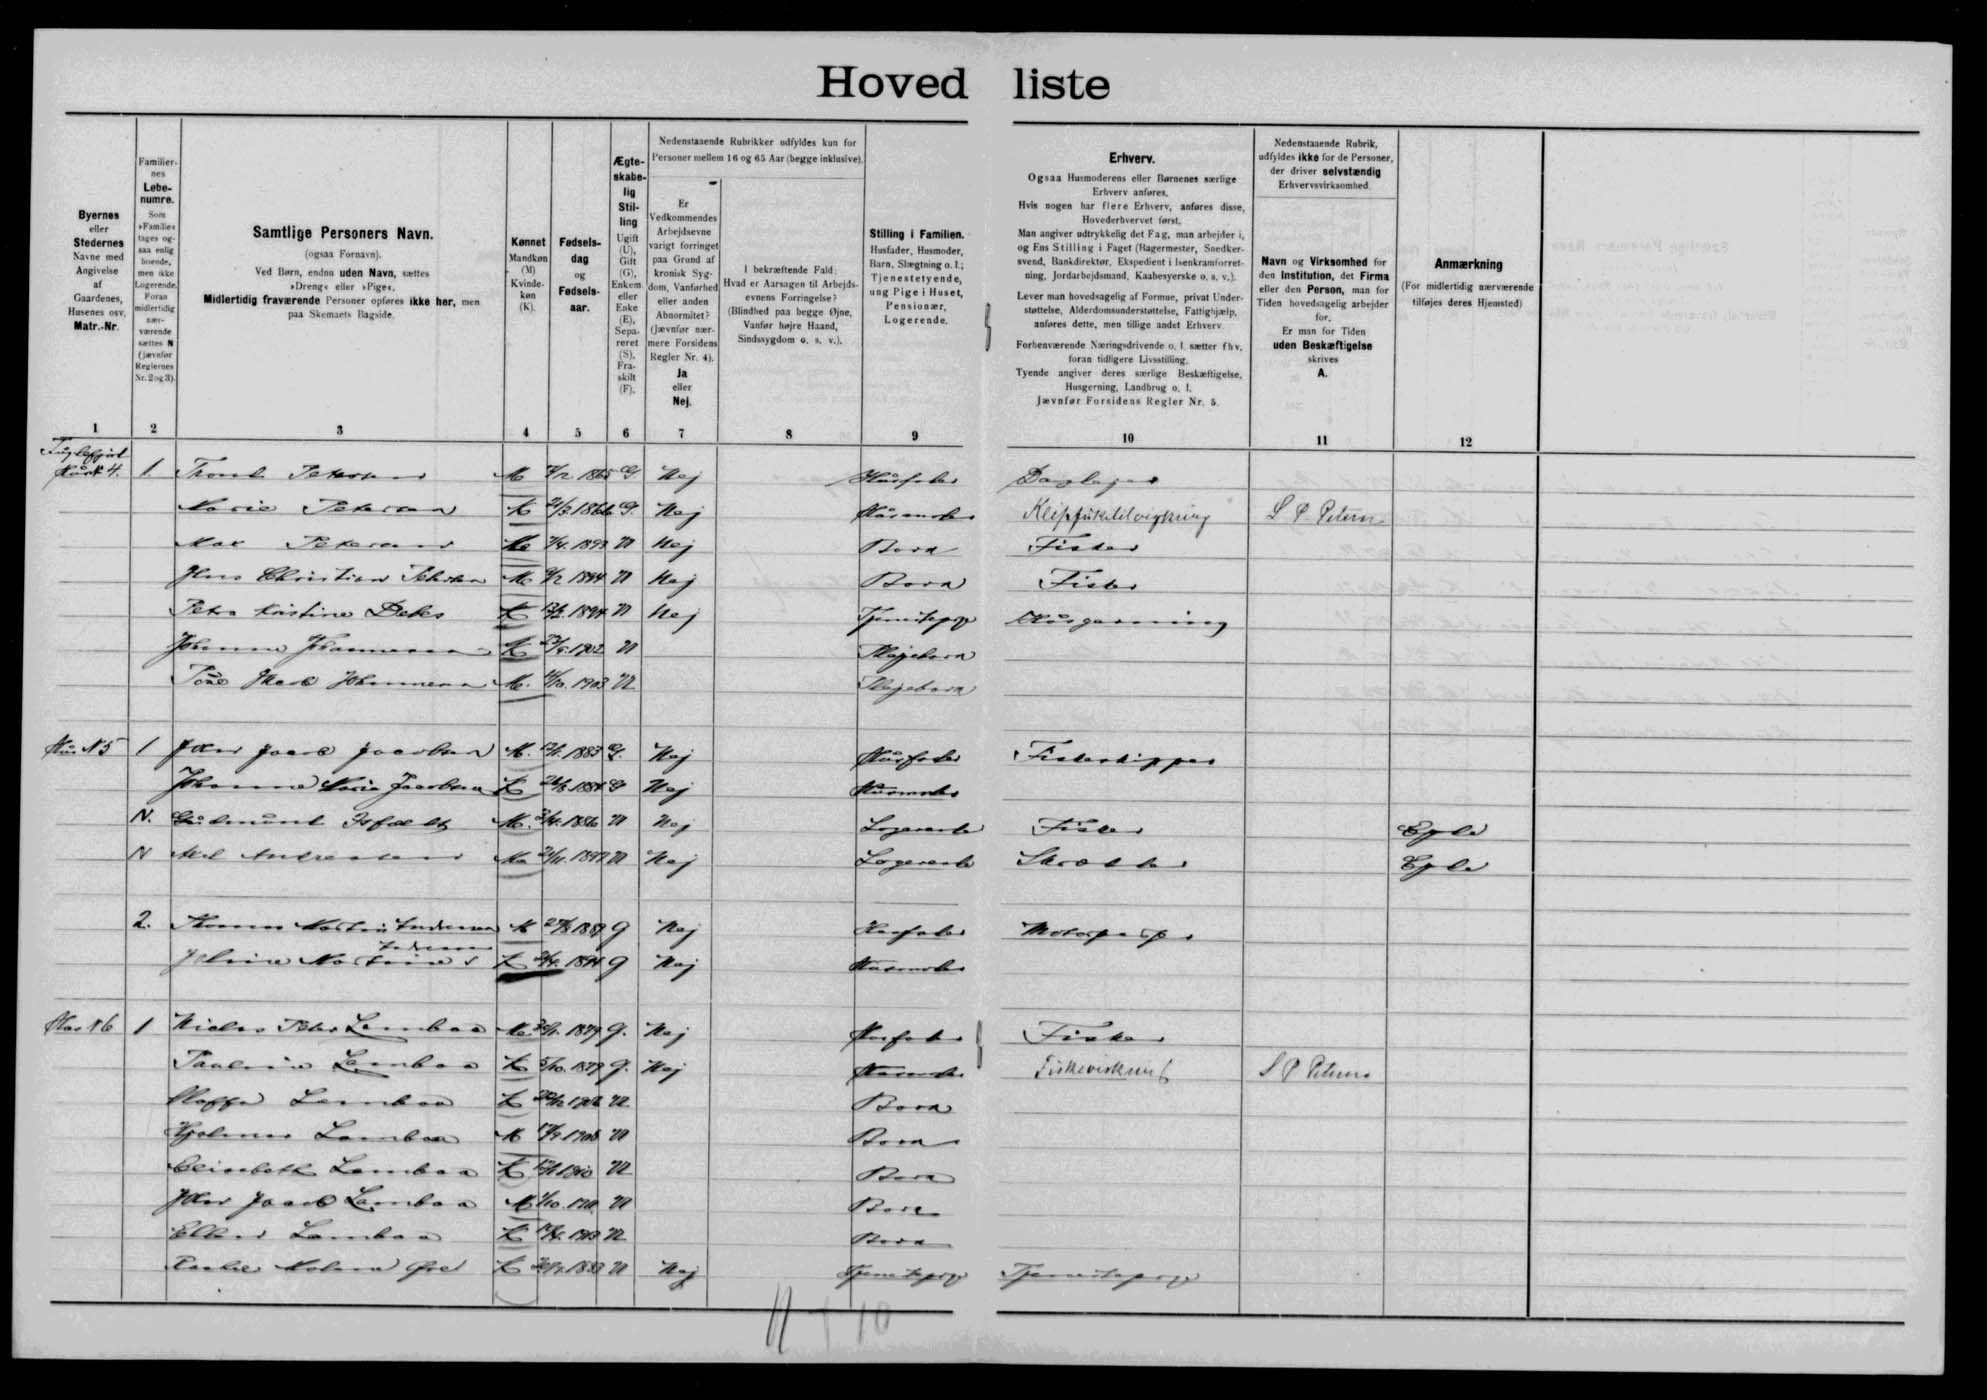 Hovedliste
Byernes eller Stedernes Navne med Angivelse af Gaardenes, Husenes osv. Matr.-Nr.
Familiernes Løbenumre. Som »Familie« tages ogsaa enlig boende, men ikke Logerende. Foran midlertidig nærværende sættes N (jævnfør Reglernes Nr. 2 og 3).
Samtlige Personers Navn.
(ogsaa Fornavn).
Ved Børn, endnu uden Navn, sættes
»Dreng« eller »Pige«.
Midlertidig fraværende Personer opføres ikke her, men
paa Skemaets Bagside.
Kønnet Mandkøn (M) Kvindekøn (K).
Fødselsdag og Fødselsaar.
Ægteskabelig Stilling Ugift (U), Gift (G), Enkem. eller Enke (E), Separeret (S), Fraskilt (F).
Nedenstaaende Rubrikker udfyldes kun for
Personer mellem 16 og 65 Aar (begge inklusive).
Er Vedkommendes Arbejdsevne varigt forringet paa Grund af kronisk Sygdom, Vanførhed eller anden Abnormitet? (Jævnfør nærmere Forsidens Regler Nr. 4). Ja eller Nej.
I bekræftende Fald: Hvad er Aarsagen til Arbejdsevnens Forringelse? (Blindhed paa begge Øjne, Vanfør højre Haand, Sindssygdom o. s. v.).
Stilling i Familien.
Husfader, Husmoder, Barn, Slægtning o. l.; Tjenestetyende, ung Pige i Huset, Pensionær, Logerende.
Erhverv.
Ogsaa Husmoderens eller Børnenes særlige
Erhverv anføres.
Hvis nogen har flere Erhverv, anføres disse,
Hovederhvervet først.
Man angiver udtrykkelig det Fag, man arbejder i,
og Ens Stilling i Faget (Bagermester, Snedkersvend, Bankdirektør, Ekspedient i Isenkramforretning, Jordarbejdsmand, Kaabesyerske o. s. v.).
Lever man hovedsagelig af Formue, privat Understøttelse, Alderdomsunderstøttelse, Fattighjælp,
anføres dette, men tillige andet Erhverv.
Forhenværende Næringsdrivende o. l. sætter fhv.
foran tidligere Livsstilling.
Tyende angiver deres særlige Beskæftigelse,
Husgerning, Landbrug o. l.
Jævnfør Forsidens Regler Nr. 5.
Nedenstaaende Rubrik,
udfyldes ikke for de Personer,
der driver selvstændig
Erhvervsvirksomhed.
Navn og Virksomhed for
den Institution, det Firma
eller den Person, man for
Tiden hovedsagelig arbejder
for.
Er man for Tiden
uden Beskæftigelse
skrives
A.
Anmærkning
(For midlertidig nærværende
tilføjes deres Hjemsted)
1 2 3 4 5 6 7 8 9 10 11 12
Fuglefjord
Hus N 4. 1. Petersen M 1865 G. Nej Husfader Daglejer
Marie Petersen K 1866 G. Nej Husmoder Klipfisketilvirkning S P Petersen
Max Petersen M 1893 U Nej Barn Fisker
Jens Christian Petersen M 1894 U Nej Barn Fisker
Petra Kristine Debes K 1894 U Nej Tjenestepige Husgerning
Johanna Johannesen K 1902 U Plejebarn
Poul Jacob Johannesen M. 1903 U Plejebarn
Hus N 5 1 Jacobsen M. 1883 G. Nej Husfader Fiskeskipper
Johanne Maria Jacobsen K 1884 G Nej Husmoder
N. Gudmund Isfeld M. 1886 U Nej Logerende Fisker Ejde
N Axel Andreasen M U Nej Logerende Skrædder Ejde
2. Thomas Martin Joensen M G Nej Husfader Motorpasser
Martine K 1894 G Nej Husmoder
Hus N 6 1 Niclas Peter Lambaa M 1879 G. Nej Husfader Fisker
Paulina Lambaa K 1879 G. Nej Husmoder Fiskevirkning S P Petersen
Lambaa K U Barn
Hjalmar Lambaa M 1908 U Barn
Elisabeth Lambaa K 1910 U Barn
Jacob Lambaa M U Barn
Ellen Lambaa K 1913 U Barn
K 1883 U Nej Tjenestepige Tjenestepige
11 + 10